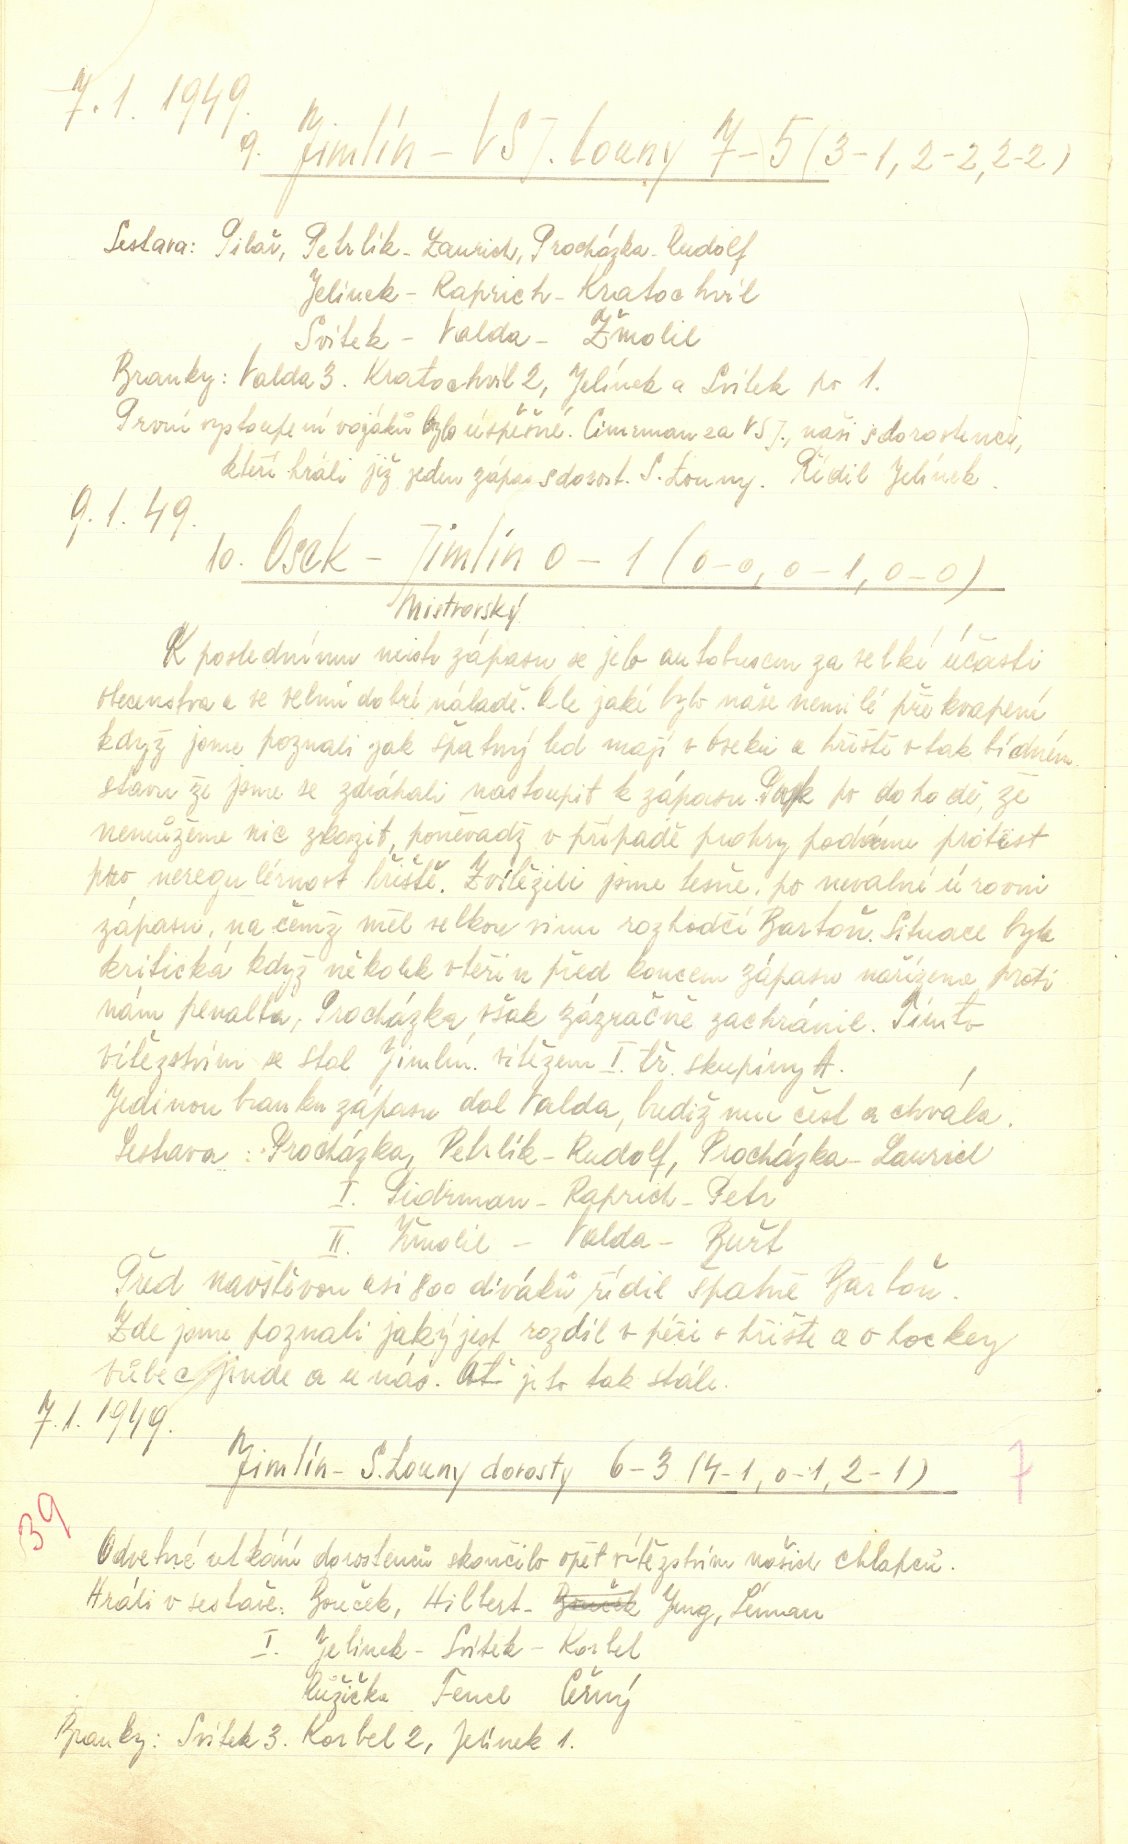 7.1. 1949.
9. Jimlín – VSJ. Louny 7-5 (3-1, 2-2, 2-2)
Sestava: Pilař, Petrlík - Laurich, Procházka - Rudolf
Jelínek - Raprich - Kratochvíl
Svítek - Valda - Žmolil
Branky: Valda 3. Kratochvíl 2, Jelínek a Svítek po 1.
První vystoupení vojáků bylo úspěšné. Cimrman za VSJ., naši s dorostenci,
kteří hráli již jeden zápas s dorost. S. Louny. Řídil Jelínek.
9.1. 49.
10. Osek – Jimlín 0 – 1 (0-0, 0-1, 0-0)
Mistrovský
K poslednímu mistr zápasu se jelo autobusem za velké účasti
obecenstva a ve velmi dobré náladě. Ale jaké bylo naše nemilé překvapení
když jsme poznali jak špatný led mají v Oseku a hřiště v tak bídném
stavu že jsme se zdráhali nastoupit k zápasu. Pak po dohodě, že
nemůžeme nic zkazit, poněvadž v případě prohry podáme protest
pro neregulérnost hřiště. Zvítězili jsme těsně, po nevalné úrovni
zápasu, na čemž měl velkou vinu rozhodčí Bartoň. Situace byla
kritická když několik vteřin před koncem zápasu nařízena proti
nám penalta, Procházka však zázračně zachránil. Tímto
vítězstvím se stal Jimlín. vítězem I. tř. skupiny A.
Jedinou branku zápasu dal Valda, budiž mu čest a chvála.
Sestava: Procházka, Petrlík - Rudolf, Procházka - Laurich
I. Pidrman - Raprich - Petr
II. Žmolil - Valda - Buřt
Před navštěvou asi 800 diváků řídil špatně Bartoň.
Zde jsme poznali jaký jest rozdíl v péči o hřiště a o hockey
vůbec jinde a u nás. Ať je to tak stále.
7.1. 1949.
Jimlín - S. Louny dorosty 6-3 (4-1, 0-1, 2-1)
7
39
Odvetné utkání dorostenců skončilo opět vítězstvím našich chlapců.
Hráli v sestavě: Bouček, Hilbert - Jung, Léman
I. Jelínek - Svítek - Korbel
Růžička Fencl Černý
Branky: Svítek 3. Korbel 2, Jelínek 1.